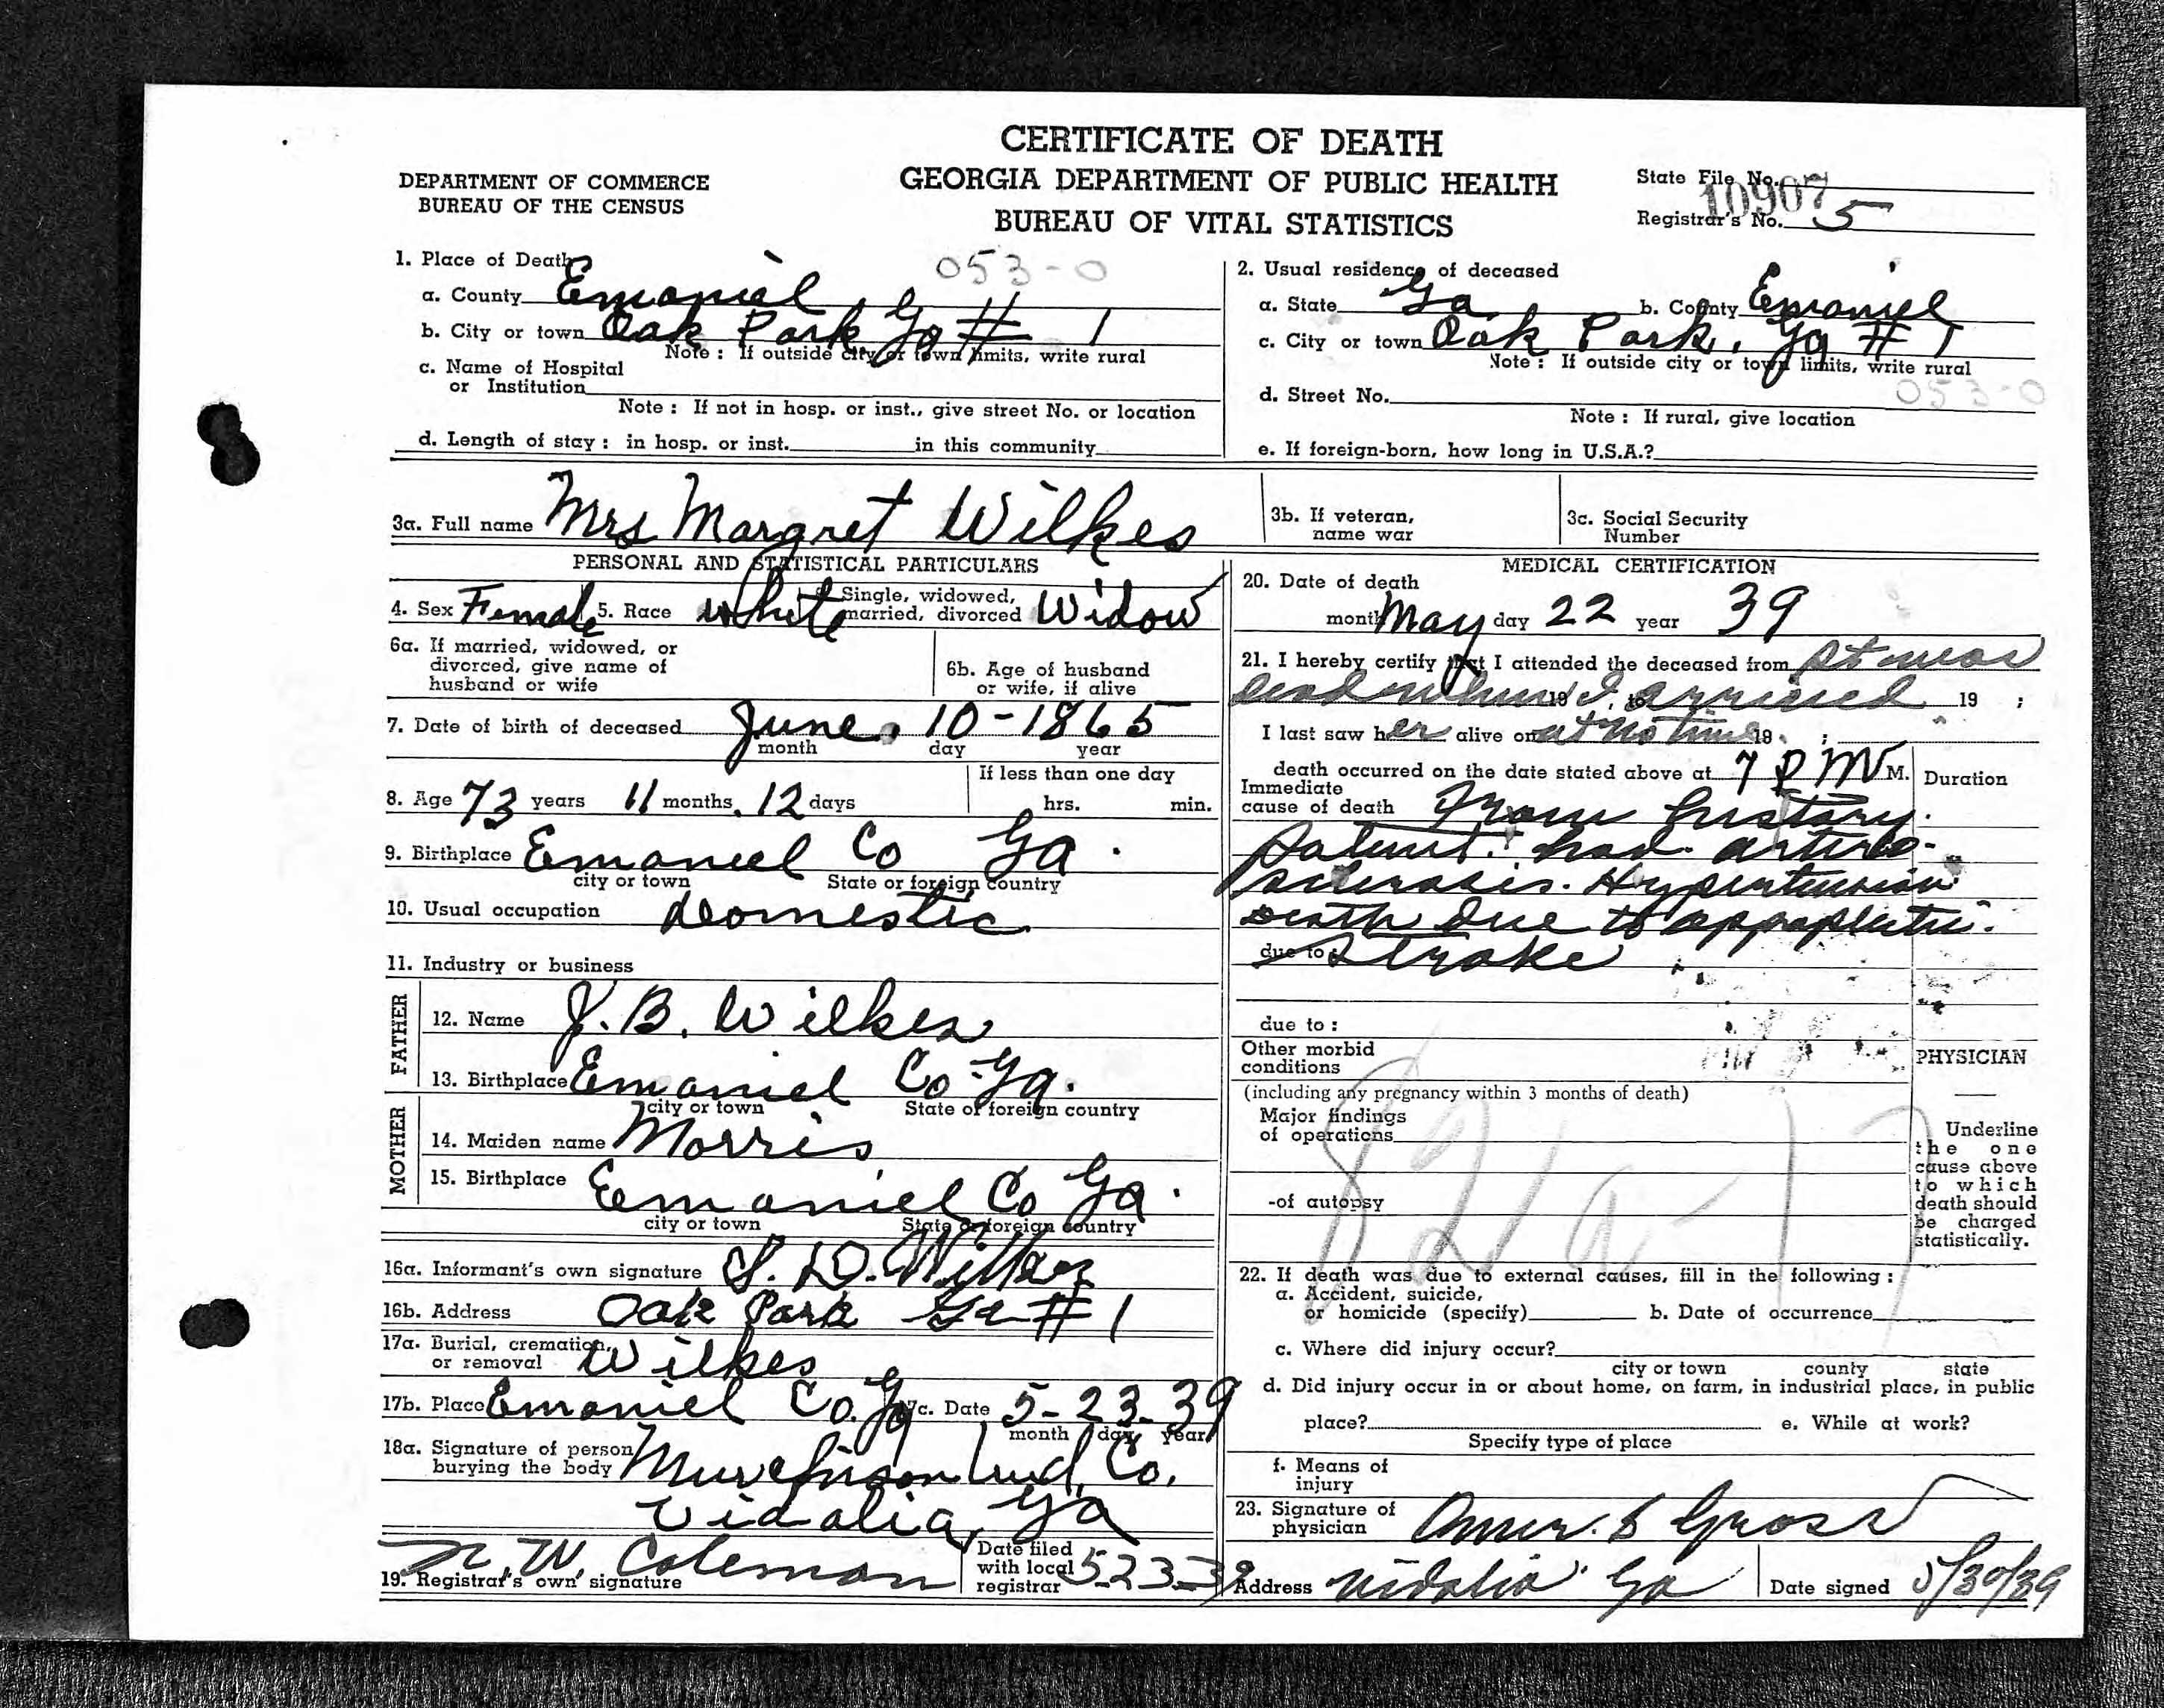 CERTIFICATE OF DEATH
DEPARTMENT OF COMMERCE
BUREAU OF THE CENSUS
GEORGIA DEPARTMENT OF PUBLIC HEALTH
BUREAU OF VITAL STATISTICS
State File No. 10907
Registrar's No. 5
1. Place of Death 053-0
a. County Emanial
b. City or town Oak Park Ga # 1
Note: If outside city or town limits, write rural
c. Name of Hospital
or Institution
Note: If not in hosp. or inst., give street No. or location
d. Length of stay: in hosp. or inst. in this community
2. Usual residence of deceased
a. State Ga b. County Emaniel
c. City or town Oak Park, Ga # 1
Note: If outside city or town limits, write rural
d. Street No. 053-0
Note: If rural, give location
e. If foreign-born, how long in U.S.A.?
3a. Full name Mrs Margret Wilkes
3b. If veteran,
name war
3c. Social Security
Number
PERSONAL AND STATISTICAL PARTICULARS
4. Sex Female 5. Race white Single, widowed,
married, divorced Widow
6a. If married, widowed, or
divorced, give name of
husband or wife
6b. Age of husband
or wife, if alive
7. Date of birth of deceased June 10-1865
month day year
8. Age 73 years 11 months, 12 days
If less than one day
hrs. min.
9. Birthplace Emaniel Co Ga.
city or town State or foreign country
10. Usual occupation domestic
11. Industry or business
FATHER
12. Name J. B. Wilkes
13. Birthplace Emaniel Co Ga.
city or town State or foreign country
MOTHER
14. Maiden name Morris
15. Birthplace Emaniel Co Ga.
city or town State or foreign country
16a. Informant's own signature S. D. Wilkes
16b. Address Oak Park Ga # 1
17a. Burial, cremation,
or removal Wilkes
17b. Place Emaniel Co. Ga 17c. Date 5-23-39
month day year
18a. Signature of person
burying the body Murchison Und. Co.
Vidalia, Ga
19. Registrar's own signature N. W. Coleman
Date filed
with local
registrar 5-23-39
MEDICAL CERTIFICATION
20. Date of death
month May day 22 year 39
21. I hereby certify that I attended the deceased from Pt was
dead when I arrived 19 ;
I last saw her alive on at no time 19 ;
death occurred on the date stated above at 7 P M M.
Duration
Immediate
cause of death From history
Patient had arterio-
sclerosis. Hypertension
Death due to appoplectic
due to Stroke
due to:
Other morbid
conditions
(including any pregnancy within 3 months of death)
Major findings
of operations
-of autopsy
82a-17
PHYSICIAN
Underline
the one
cause above
to which
death should
be charged
statistically.
22. If death was due to external causes, fill in the following:
a. Accident, suicide,
or homicide (specify) b. Date of occurrence
c. Where did injury occur?
city or town county state
d. Did injury occur in or about home, on farm, in industrial place, in public
place? e. While at work?
Specify type of place
f. Means of
injury
23. Signature of
physician Gross
Address Vidalia Ga Date signed 5/30/39